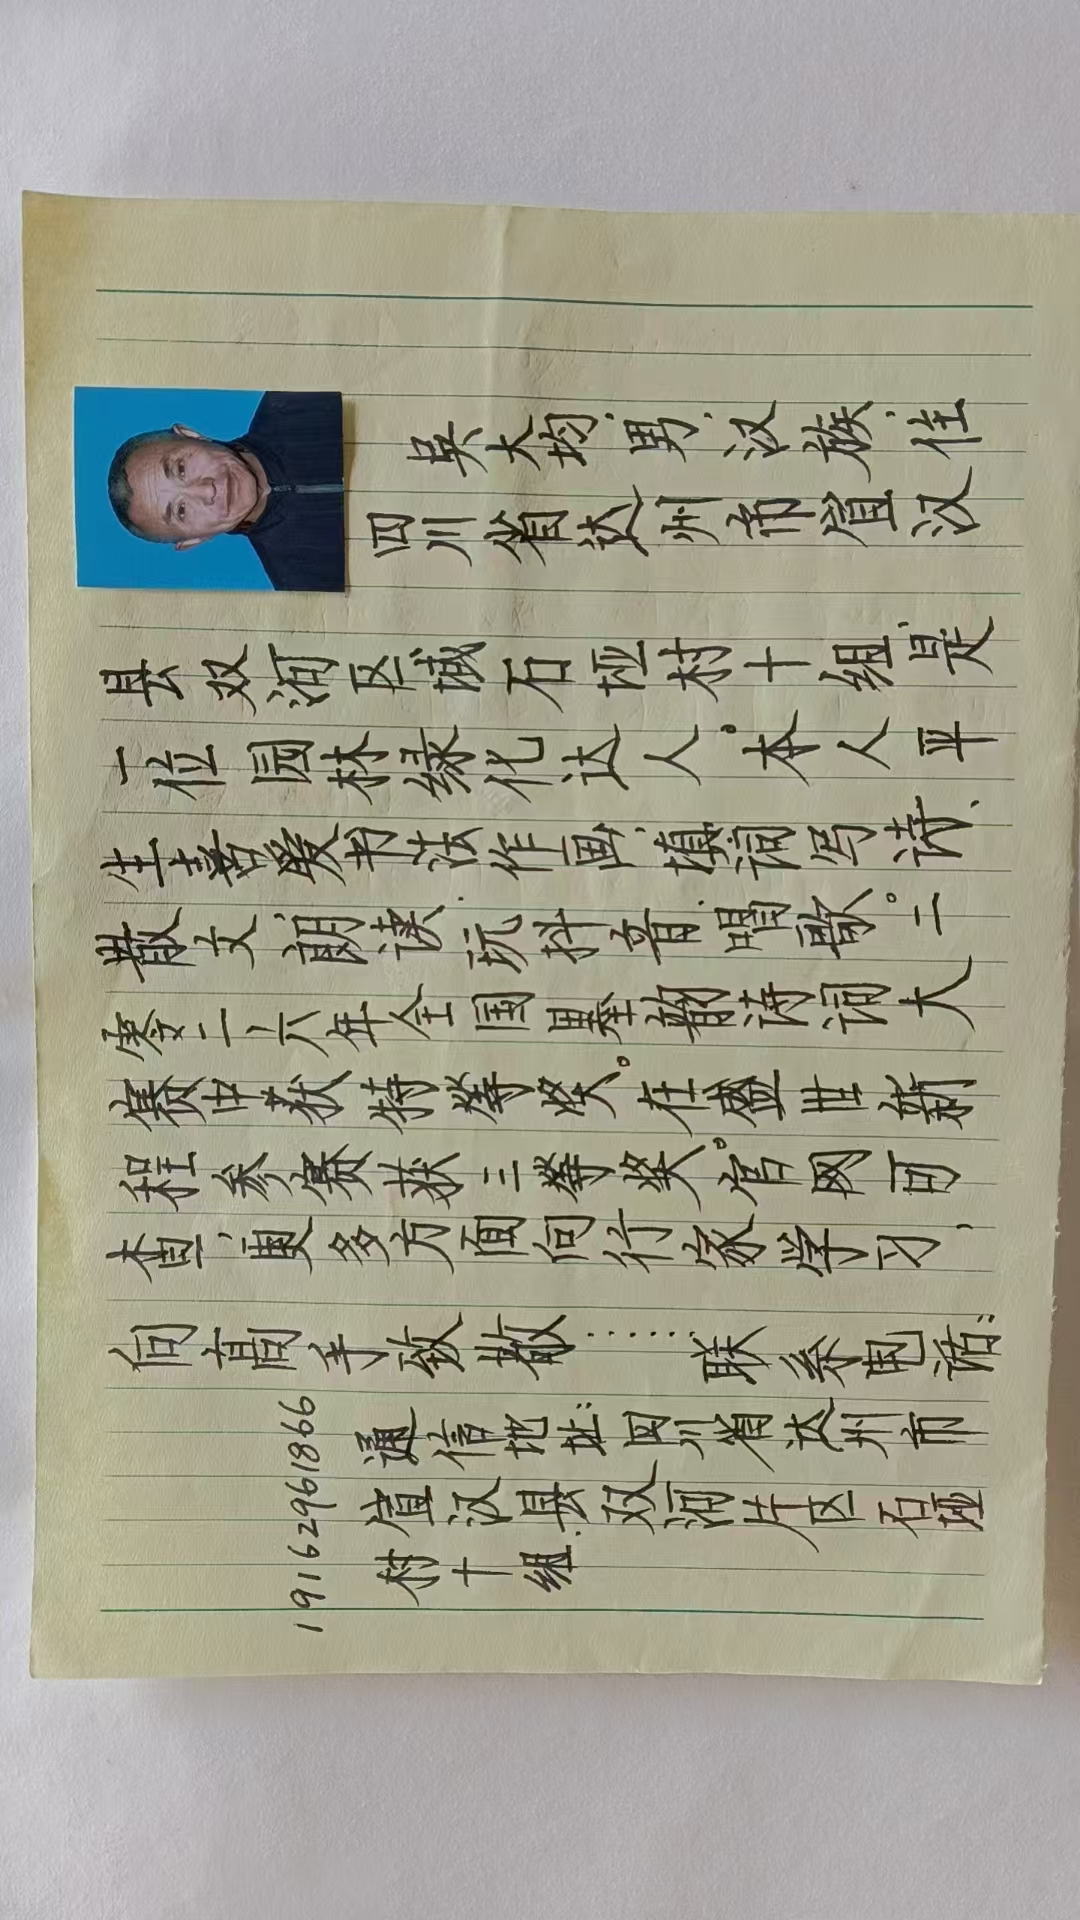 吴大均.男.汉族.住
四川省达州市宣汉
县双河区域石垭村十组.是
一位园林绿化达人。本人平
生喜爱书法作画.填词写诗、
散文.朗读.玩抖音.唱歌。二
零二六年全国墨韵诗词大
赛中获特等奖。在盛世新
程参赛获三等奖。官网可
查.更多方面向行家学习,
向高手致敬……联系电话:
19162961866
通信地址:四川省达州市
宣汉县双河片区石垭
村十组.